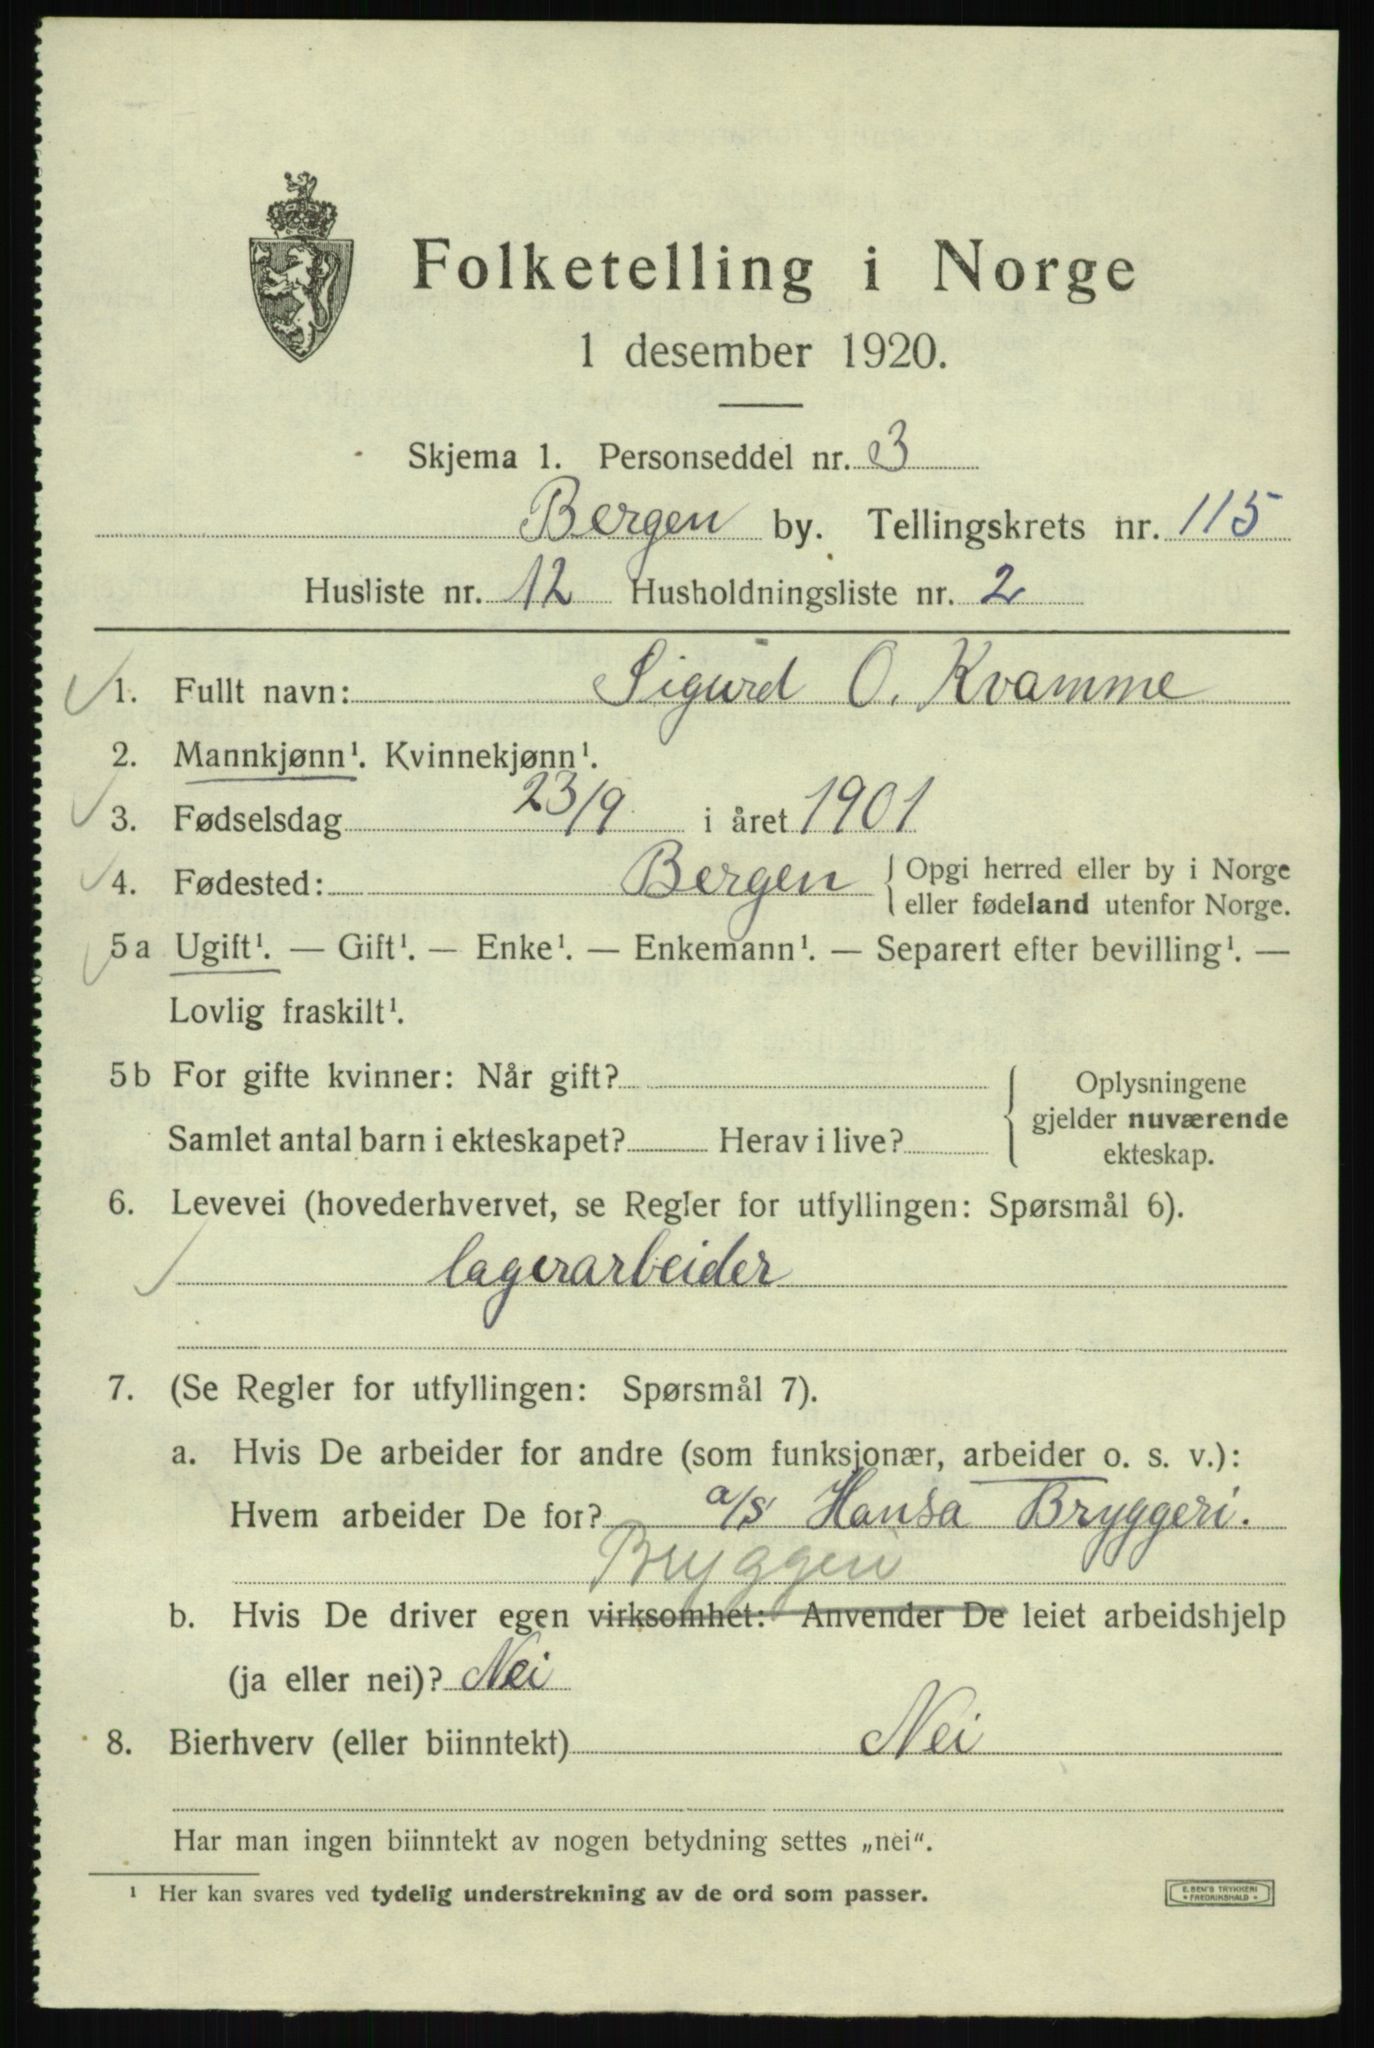 Folketelling i Norge
1 desember 1920.
Skjema 1. Personseddel nr. 3
Bergen by. Tellingskrets nr. 115
Husliste nr. 12 Husholdningsliste nr. 2
1. Fullt navn: Sigurd O. Kvamme
2. Mannkjønn¹. Kvinnekjønn¹.
3. Fødselsdag 23/9 i året 1901
4. Fødested: Bergen { Opgi herred eller by i Norge
eller fødeland utenfor Norge.
5a Ugift¹. — Gift¹. — Enke¹. — Enkemann¹. — Separert efter bevilling¹. —
Lovlig fraskilt¹.
5b For gifte kvinner: Når gift? { Oplysningene
gjelder nuværende
Samlet antal barn i ekteskapet? Herav i live?
ekteskap.
6. Levevei (hovederhvervet, se Regler for utfyllingen: Spørsmål 6).
lagerarbeider
7. (Se Regler for utfyllingen: Spørsmål 7).
a. Hvis De arbeider for andre (som funksjonær, arbeider o. s. v.):
Hvem arbeider De for? a/s Hansa Bryggeri.
Bryggeri
b. Hvis De driver egen virksomhet: Anvender De leiet arbeidshjelp
(ja eller nei)? Nei
8. Bierhverv (eller biinntekt) Nei
Har man ingen biinntekt av nogen betydning settes „nei“.
¹ Her kan svares ved tydelig understrekning av de ord som passer.
E. SEM'S TRYKKERI
FREDRIKSHALD